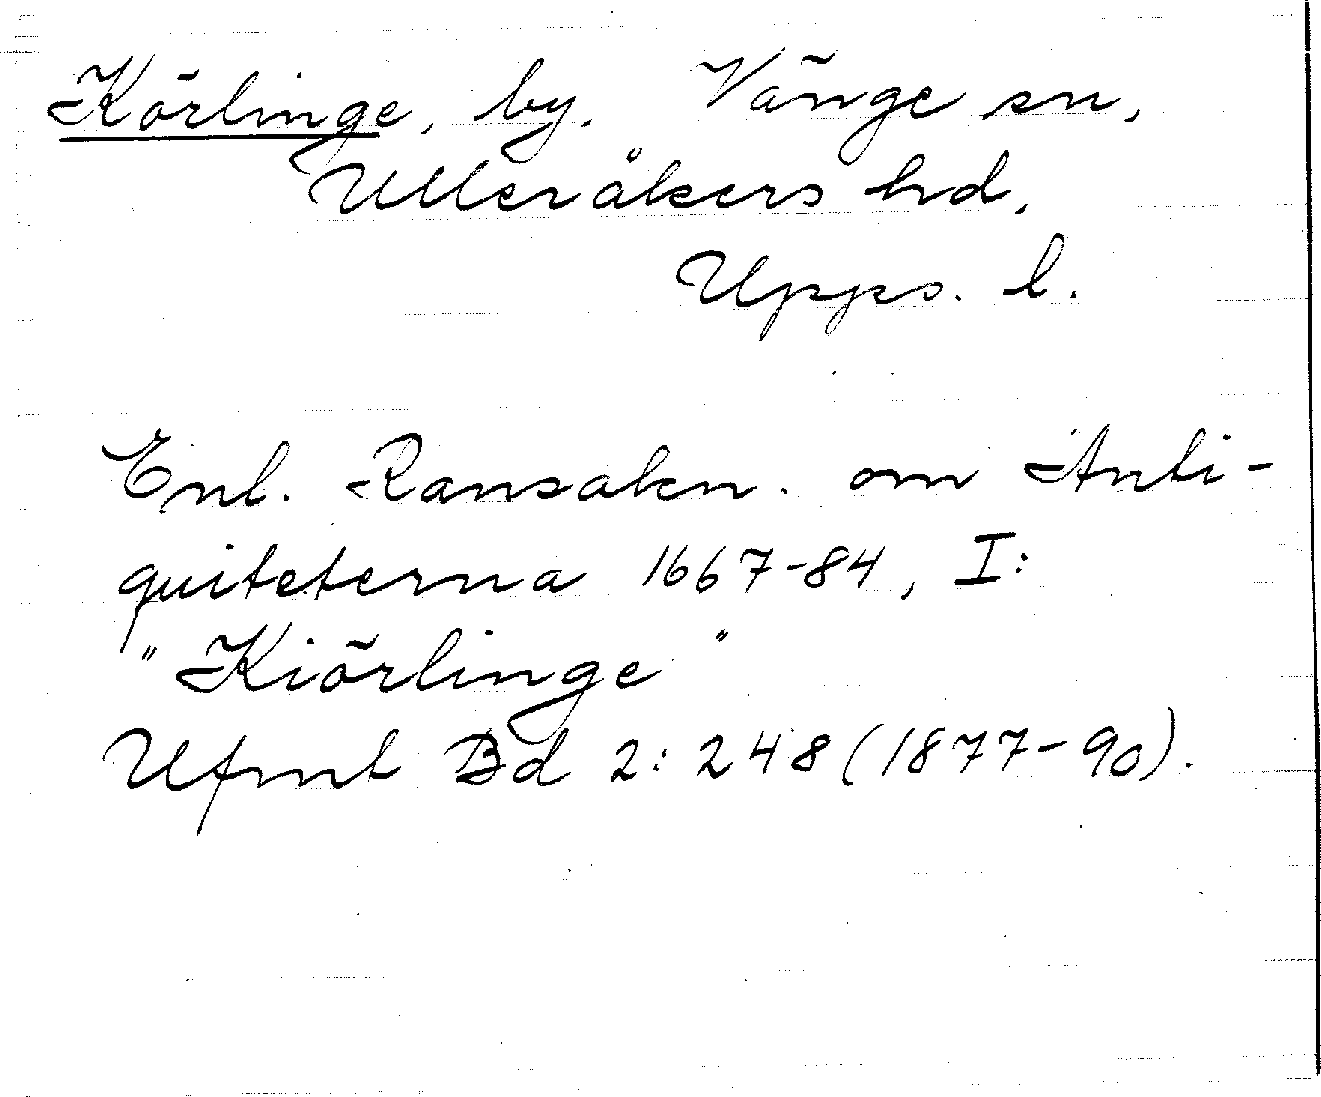 Körlinge, by. Vänge sn,
Ulleråkers hd.
Upps. l.
Enl. Ransakn. om Anti-
quiteterna 1667-84, I:
"Kiörlinge"
Ufmt Bd 2: 248 (1877-90).